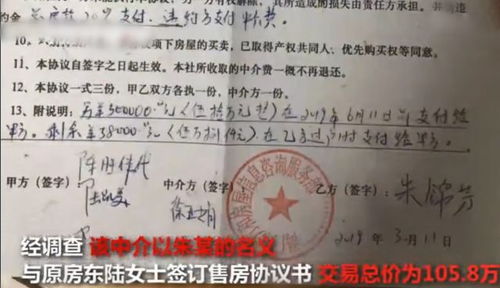 约金 总房款30%支付，违约方支付
其所造成的损失由责任方承担。
项下房屋的买卖，已取得产权共同人、优先购买权等同意。
11、本协议自签字之日起生效。本社所收取的中介费一概不再退还。
12、本协议一式三份，甲乙双方各执一份，中介方一份。
13、附说明：另筹500000元（伍拾万元整）在2019年6月11日前支付给
甲方。剩余筹38000元（ ）在乙方过户时支付给甲方。
甲方（签字） 中介方（签字） 乙方（签字） 朱锦芳
房屋信息咨询服务部
2019年3月11日
经调查 该中介以朱某的名义
与原房东陆女士签订售房协议书 交易总价为105.8万